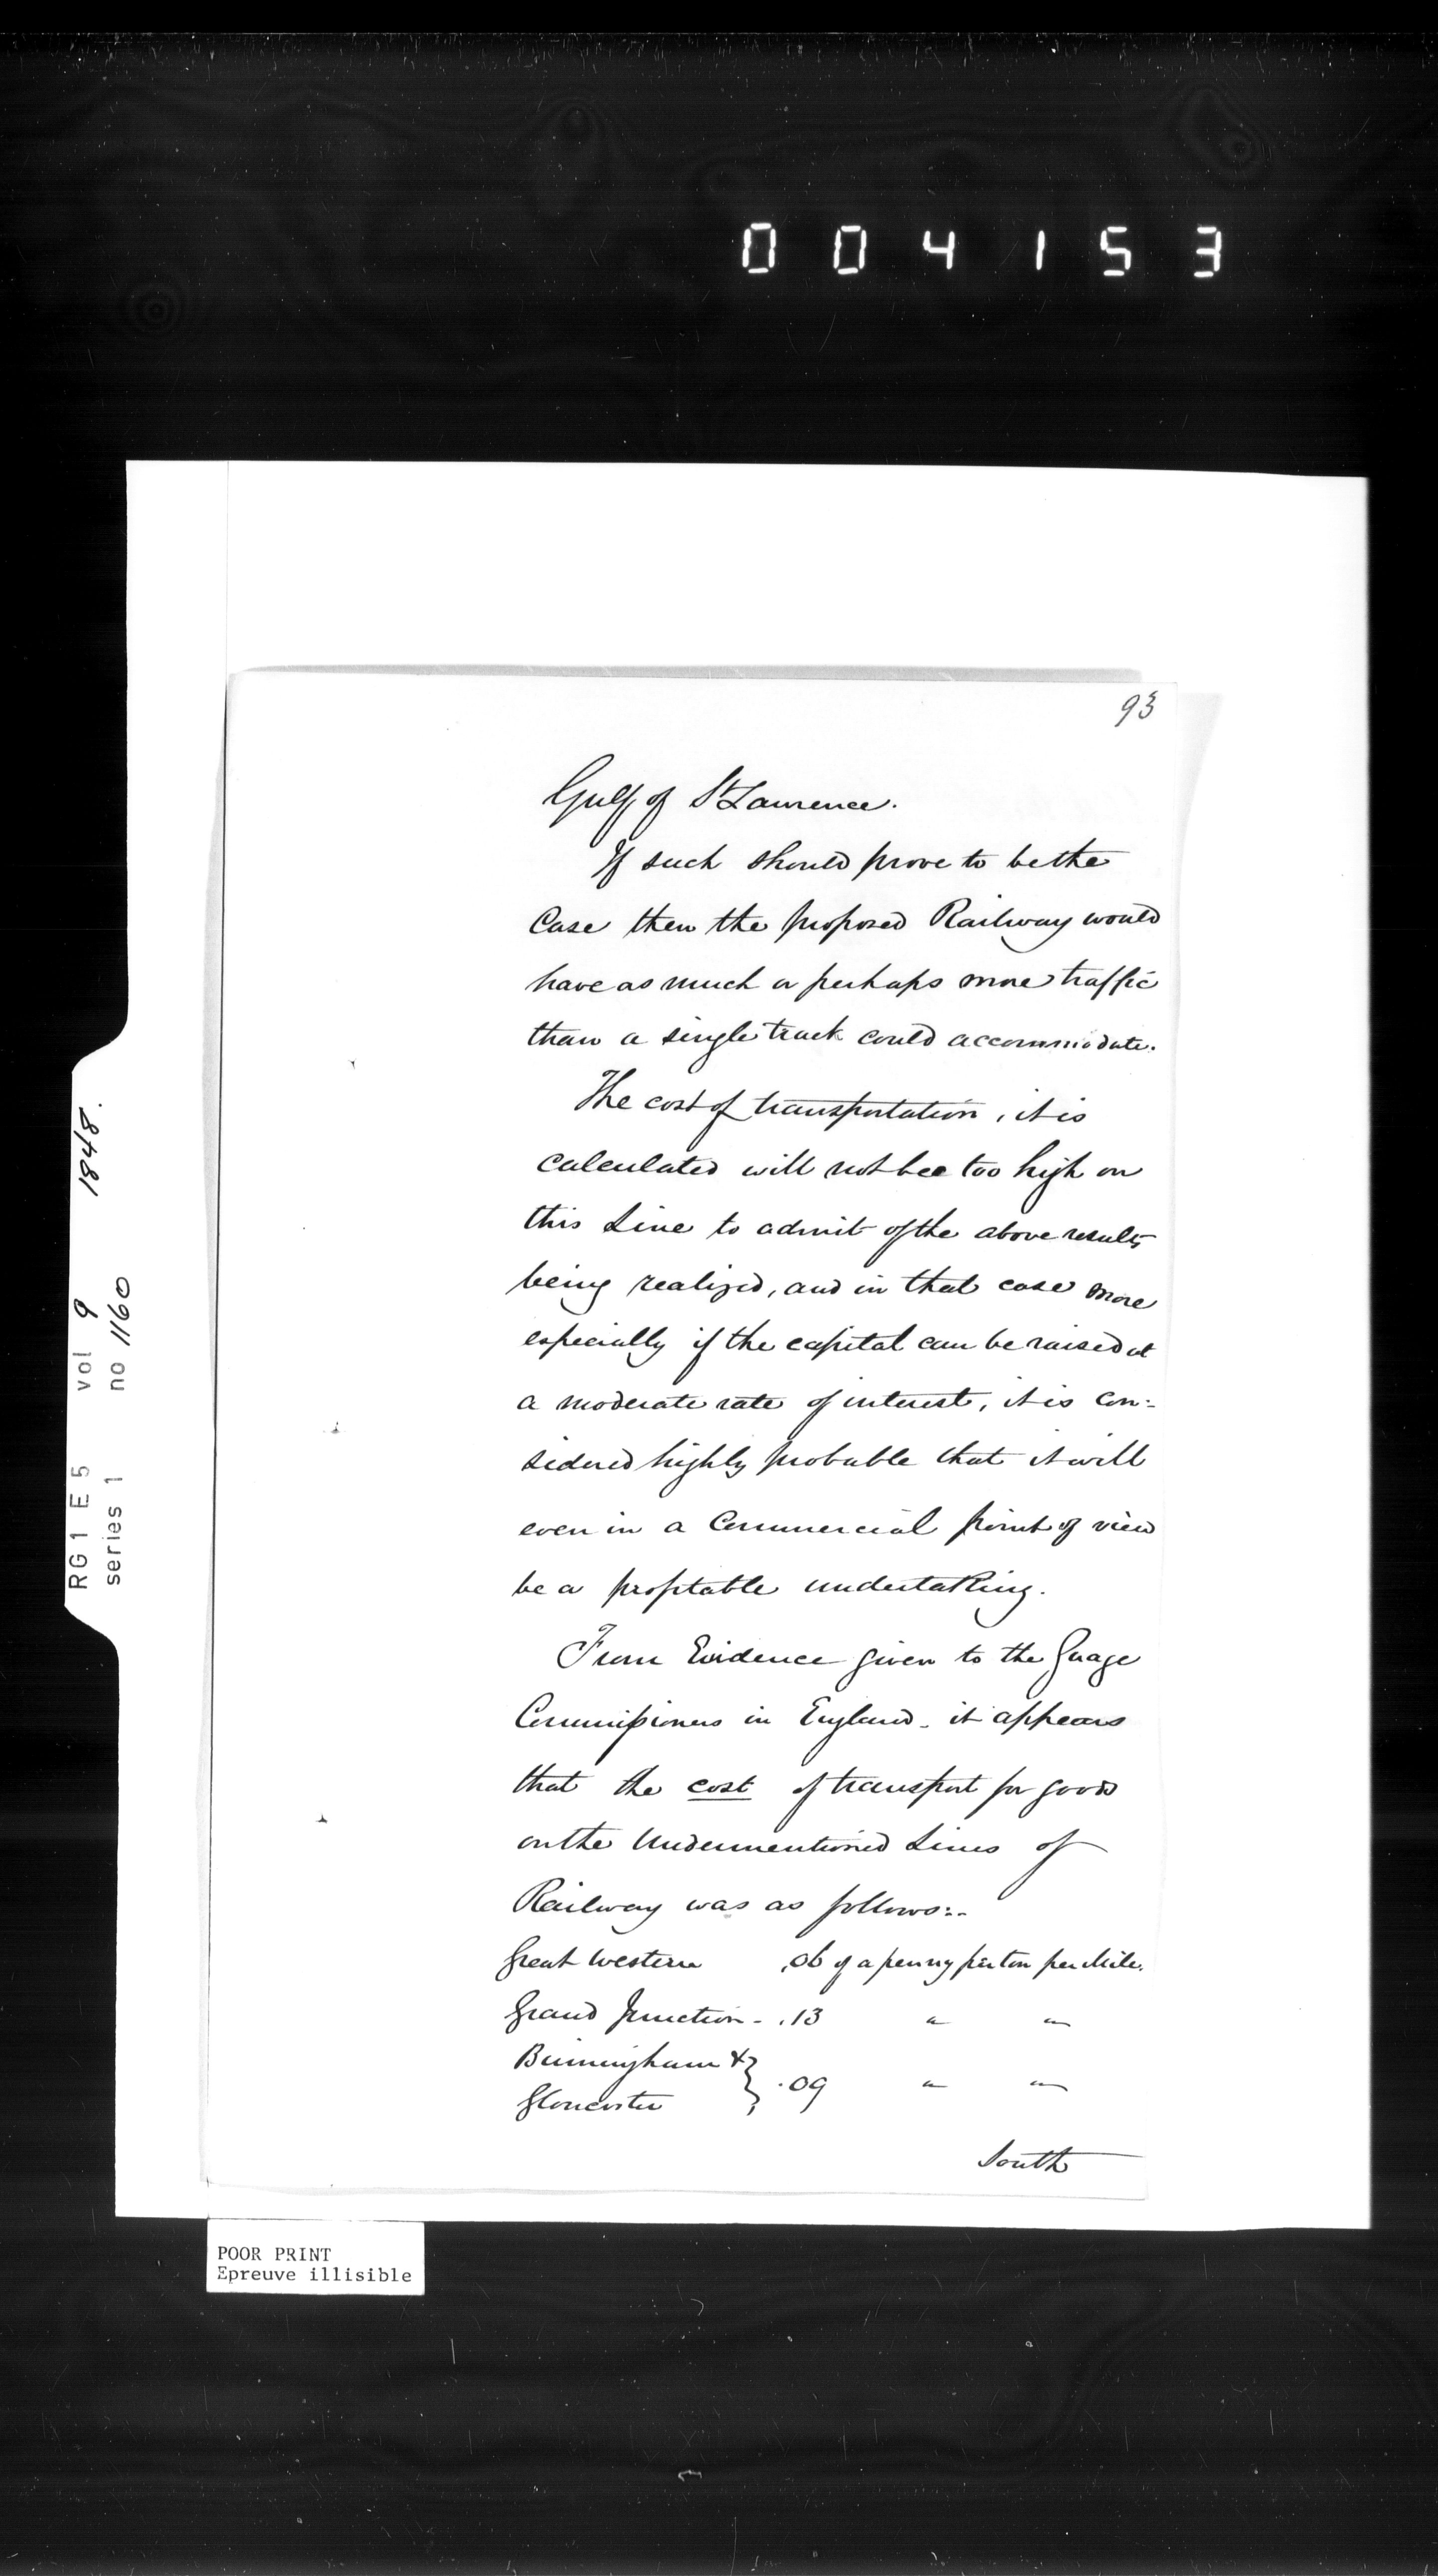 004153
93
Gulf of St Lawrence.
If such should prove to be the
Case then the proposed Railway would
have as much or perhaps more traffic
than a single track could accommodate.
The cost of transportation, it is
calculated will not bee too high on
this Line to admit of the above results
being realized, and in that case more
especially if the capital can be raised at
a moderate rate of interest, it is con:
sidered highly probable that it will
even in a Commercial point of view
be a profitable undertaking.
From Evidence given to the Guage
Commissioners in England - it appears
that the cost of transport for goods
on the Undermentioned Lines of
Railway was as follows:-
Great Western .06 of a penny per ton per Mile.
Grand Junction - .13 " "
Birmingham &
Gloucester } .09 " "
South
1848.
RG 1 E 5 vol 9
series 1 no 1160
POOR PRINT
Epreuve illisible